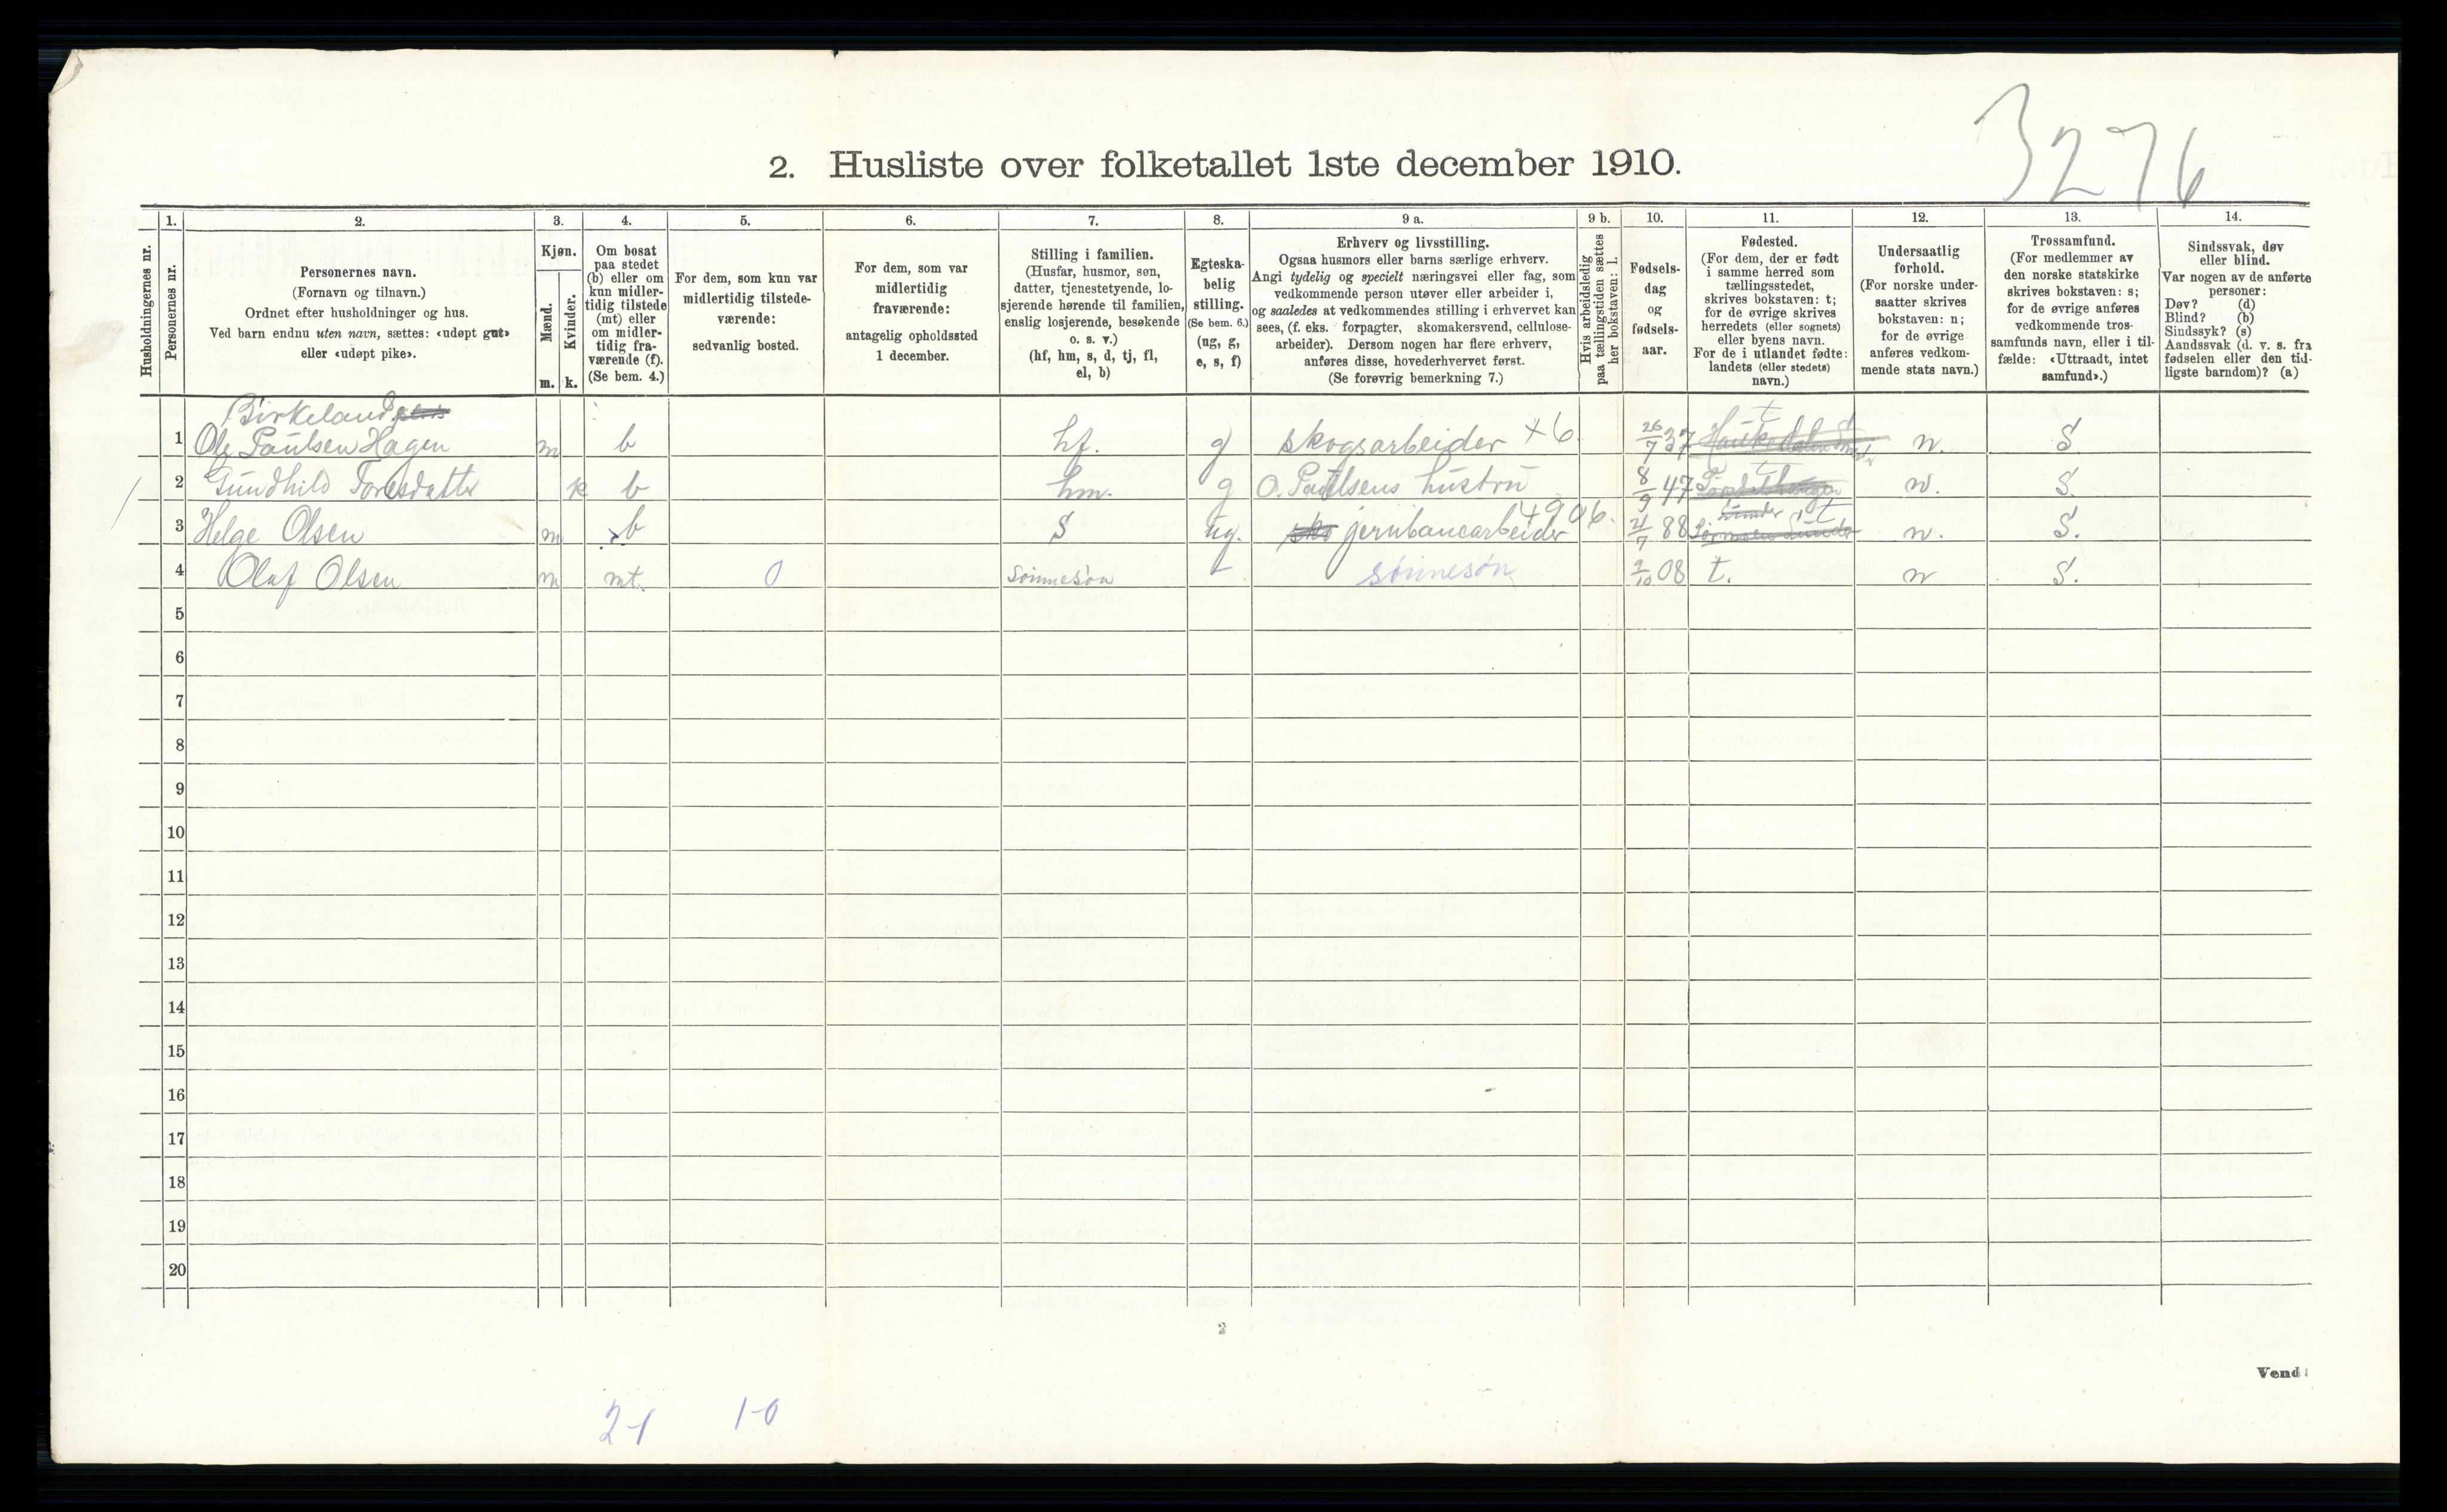 3276
2. Husliste over folketallet 1ste december 1910.
Husholdningernes nr.
1.
Personernes nr.
2.
Personernes navn.
(Fornavn og tilnavn.)
Ordnet efter husholdninger og hus.
Ved barn endnu uten navn, sættes: «udøpt gut»
eller «udøpt pike».
3.
Kjøn.
Mænd.
Kvinder.
m. k.
4.
Om bosat
paa stedet
(b) eller om
kun midler-
tidig tilstede
(mt) eller
om midler-
tidig fra-
værende (f).
(Se bem. 4.)
5.
For dem, som kun var
midlertidig tilstede-
værende:
sedvanlig bosted.
6.
For dem, som var
midlertidig
fraværende:
antagelig opholdssted
1 december.
7.
Stilling i familien.
(Husfar, husmor, søn,
datter, tjenestetyende, lo-
sjerende hørende til familien,
enslig losjerende, besøkende
o. s. v.)
(hf, hm, s, d, tj, fl,
el, b)
8.
Egteska-
belig
stilling.
(Se bem. 6.)
(ug, g,
e, s, f)
9 a.
Erhverv og livsstilling.
Ogsaa husmors eller barns særlige erhverv.
Angi tydelig og specielt næringsvei eller fag, som
vedkommende person utøver eller arbeider i,
og saaledes at vedkommendes stilling i erhvervet kan
sees, (f. eks. forpagter, skomakersvend, cellulose-
arbeider). Dersom nogen har flere erhverv,
anføres disse, hovederhvervet først.
(Se forøvrig bemerkning 7.)
9 b.
Hvis arbeidsledig
paa tællingstiden sættes
her bokstaven: l.
10.
Fødsels-
dag
og
fødsels-
aar.
11.
Fødested.
(For dem, der er født
i samme herred som
tællingsstedet,
skrives bokstaven: t;
for de øvrige skrives
herredets (eller sognets)
eller byens navn.
For de i utlandet fødte:
landets (eller stedets)
navn.)
12.
Undersaatlig
forhold.
(For norske under-
saatter skrives
bokstaven: n;
for de øvrige
anføres vedkom-
mende stats navn.)
13.
Trossamfund.
(For medlemmer av
den norske statskirke
skrives bokstaven: s;
for de øvrige anføres
vedkommende tros-
samfunds navn, eller i til-
fælde: «Uttraadt, intet
samfund».)
14.
Sindssvak, døv
eller blind.
Var nogen av de anførte
personer:
Døv? (d)
Blind? (b)
Sindssyk? (s)
Aandssvak (d. v. s. fra
fødselen eller den tid-
ligste barndom)? (a)
Birkeland t
1 Ole Paulsen Hagen m b hf. g skogsarbeider +6. 26/7 37 n. S.
2 Gundhild Toresdatter k b hm. g O. Paulsens hustru 8/9 47 t n. S.
4906.
3 Helge Olsen m b S ug. jernbanearbeider /7 88 t n. S.
4 Olaf Olsen m mt. 0 Sønnesøn - sønnesøn 2/10 08 t. n S.
5
6
7
8
9
10
11
12
13
14
15
16
17
18
19
20
2
Vend
2-1 1-0